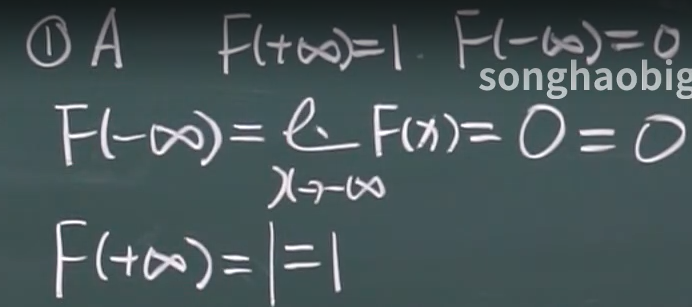 ① A F(+∞)=1. F(-∞)=0
songhaobig
F(-∞)=l. F(x)=0=0
x→-∞
F(+∞)=1=1